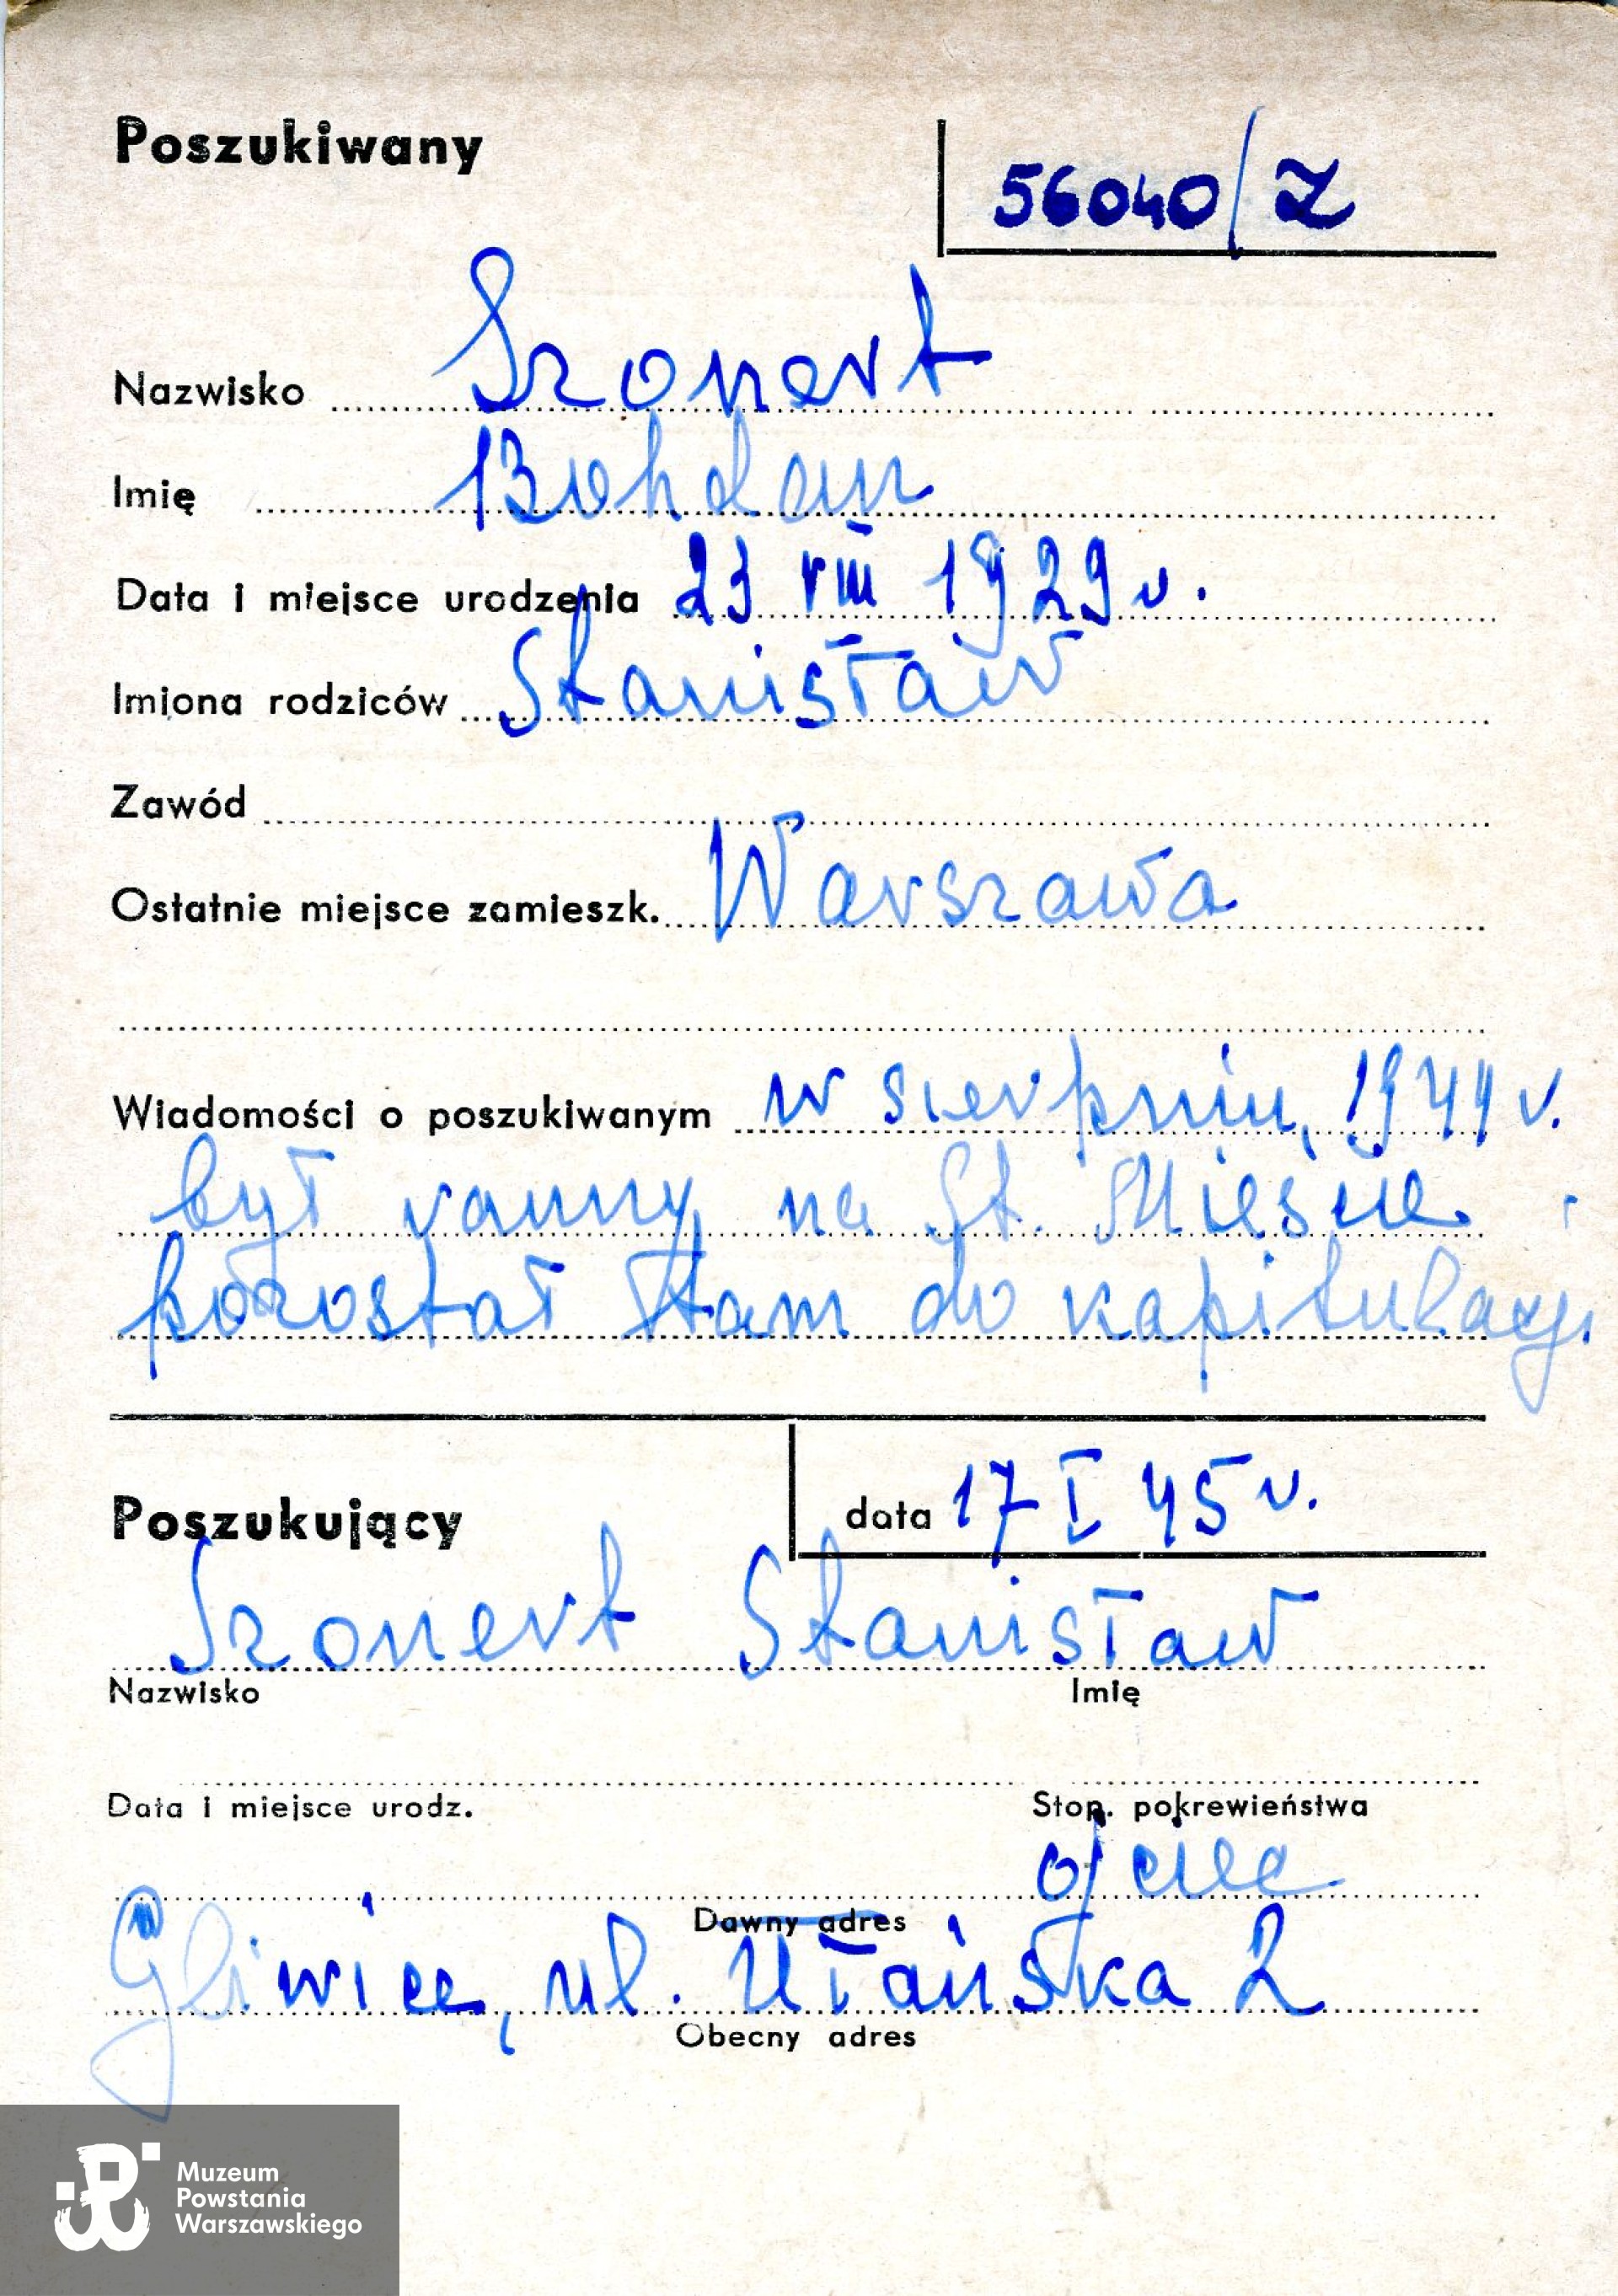 Poszukiwany
56040/Z
Nazwisko Szonert
Imię Bohdan
Data i miejsce urodzenia 23 VIII 1929 r.
Imiona rodziców Stanisław
Zawód
Ostatnie miejsce zamieszk. Warszawa
Wiadomości o poszukiwanym w sierpniu, 1944 r.
był ranny na St. Mieście i
pozostał tam do kapitulacji
Poszukujący
data 17 I 45 r.
Szonert Stanisław
Nazwisko Imię
Data i miejsce urodz. Stop. pokrewieństwa
ojciec
Dawny adres
Gliwice, ul. Ułańska 2
Obecny adres
Muzeum
Powstania
Warszawskiego